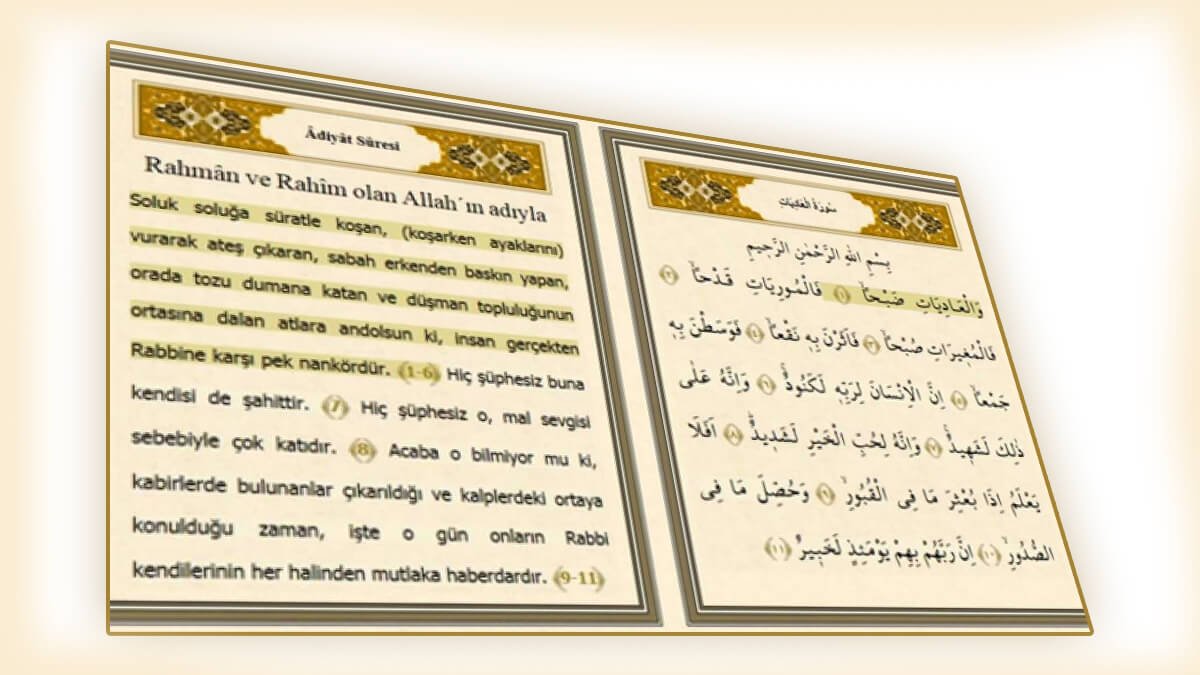 Âdiyât Sûresi
Rahmân ve Rahîm olan Allah´ın adıyla
Soluk soluğa süratle koşan, (koşarken ayaklarını)
vurarak ateş çıkaran, sabah erkenden baskın yapan,
orada tozu dumana katan ve düşman topluluğunun
ortasına dalan atlara andolsun ki, insan gerçekten
Rabbine karşı pek nankördür. (1-6) Hiç şüphesiz buna
kendisi de şahittir. (7) Hiç şüphesiz o, mal sevgisi
sebebiyle çok katıdır. (8) Acaba o bilmiyor mu ki,
kabirlerde bulunanlar çıkarıldığı ve kalplerdeki ortaya
konulduğu zaman, işte o gün onların Rabbi
kendilerinin her halinden mutlaka haberdardır. (9-11)
سُورَةُ الْعَادِيَاتِ
بِسْمِ اللهِ الرَّحْمٰنِ الرَّحِيمِ
وَالْعَادِيَاتِ ضَبْحاًۙ ﴿١﴾ فَالْمُورِيَاتِ قَدْحاًۙ ﴿٢﴾
فَالْمُغ۪يرَاتِ صُبْحاًۙ ﴿٣﴾ فَاَثَرْنَ بِه۪ نَقْعاًۙ ﴿٤﴾ فَوَسَطْنَ بِه۪
جَمْعاًۙ ﴿٥﴾ اِنَّ الْاِنْسَانَ لِرَبِّه۪ لَكَنُودٌۚ ﴿٦﴾ وَاِنَّهُ عَلٰى
ذٰلِكَ لَشَه۪يدٌۚ ﴿٧﴾ وَاِنَّهُ لِحُبِّ الْخَيْرِ لَشَد۪يدٌۜ ﴿٨﴾ اَفَلَا
يَعْلَمُ اِذَا بُعْثِرَ مَا فِى الْقُبُورِۙ ﴿٩﴾ وَحُصِّلَ مَا فِى
الصُّدُورِۙ ﴿١٠﴾ اِنَّ رَبَّهُمْ بِهِمْ يَوْمَئِذٍ لَخَب۪يرٌ ﴿١١﴾